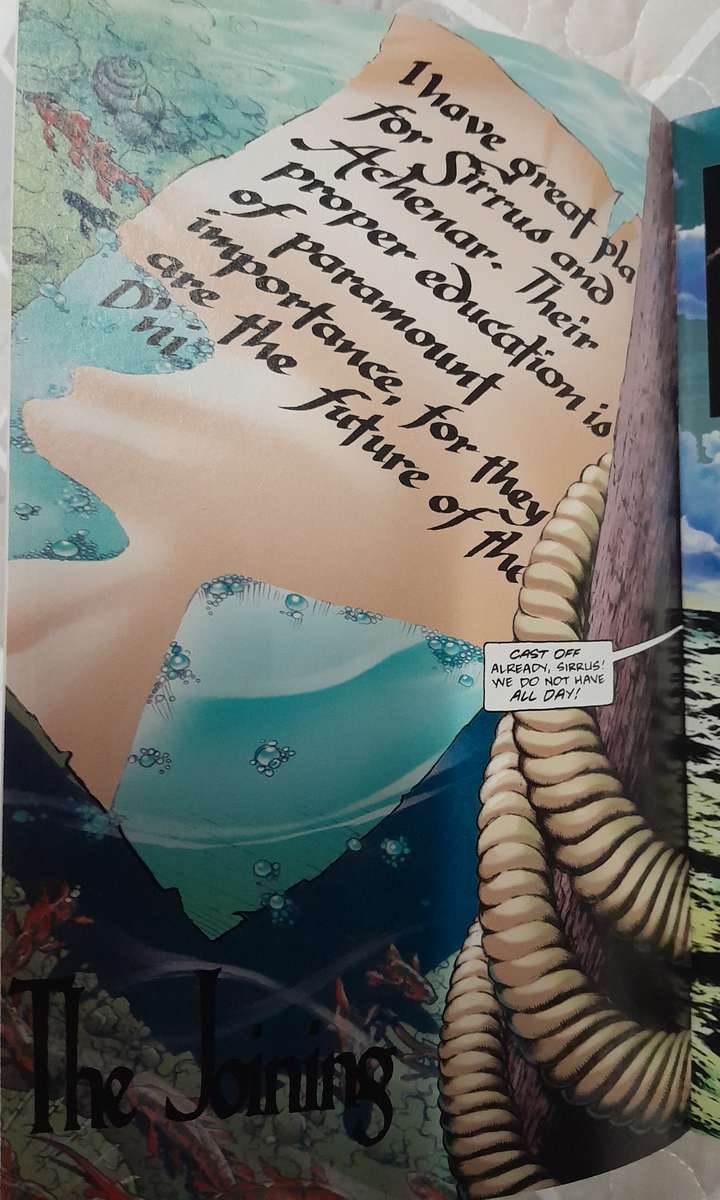 I have great pla
for Sirrus and
Achenar. Their
proper education is
of paramount
importance, for they
are the future of the
D'ni
CAST OFF
ALREADY, SIRRUS!
WE DO NOT HAVE
ALL DAY!
The Joining